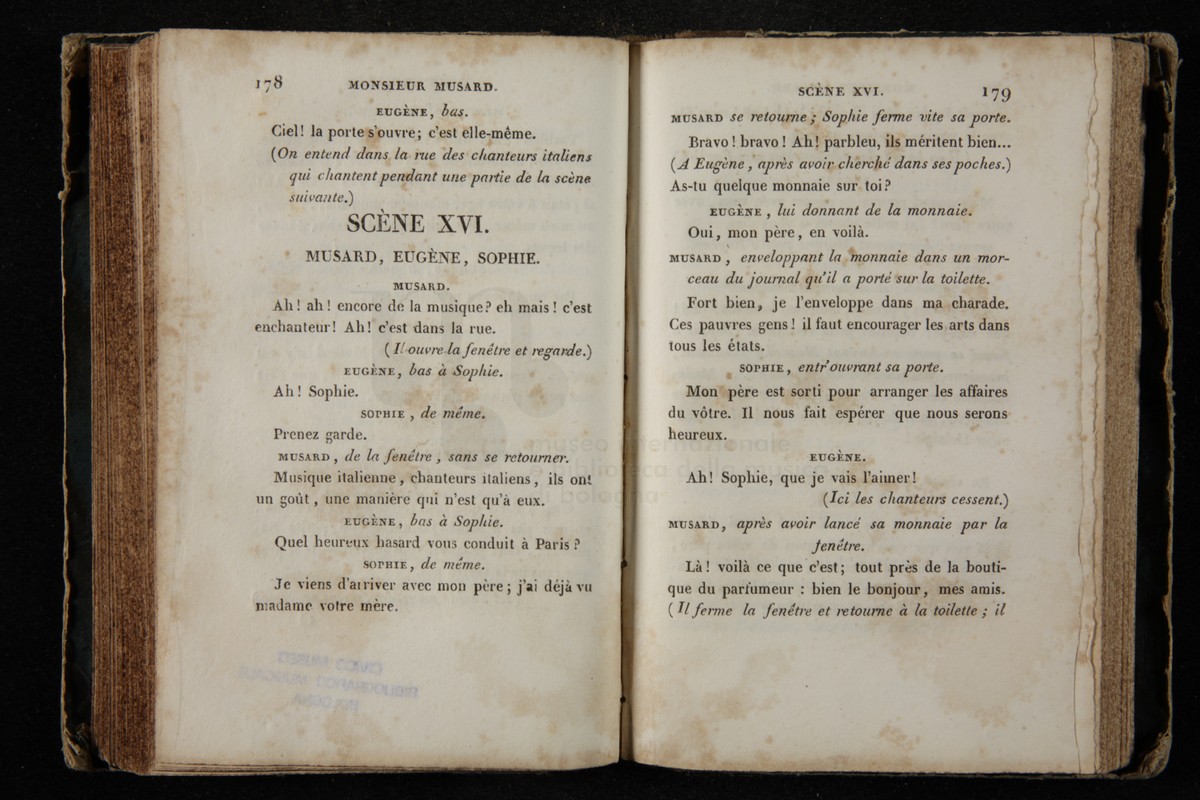 178 MONSIEUR MUSARD.
EUGÈNE, bas.
Ciel! la porte s'ouvre; c'est elle-même.
(On entend dans la rue des chanteurs italiens
qui chantent pendant une partie de la scène
suivante.)
SCÈNE XVI.
MUSARD, EUGÈNE, SOPHIE.
MUSARD.
Ah! ah! encore de la musique? eh mais! c'est
enchanteur! Ah! c'est dans la rue.
(Il ouvre la fenêtre et regarde.)
EUGÈNE, bas à Sophie.
Ah! Sophie.
SOPHIE, de même.
Prenez garde.
MUSARD, de la fenêtre, sans se retourner.
Musique italienne, chanteurs italiens, ils ont
un goût, une manière qui n'est qu'à eux.
EUGÈNE, bas à Sophie.
Quel heureux hasard vous conduit à Paris?
SOPHIE, de même.
Je viens d'arriver avec mon père; j'ai déjà vu
madame votre mère.
CIVICO MUSEO
BIBLIOGRAFICO MUSICALE
BOLOGNA
SCÈNE XVI. 179
MUSARD se retourne; Sophie ferme vite sa porte.
Bravo! bravo! Ah! parbleu, ils méritent bien...
(A Eugène, après avoir cherché dans ses poches.)
As-tu quelque monnaie sur toi?
EUGÈNE, lui donnant de la monnaie.
Oui, mon père, en voilà.
MUSARD, enveloppant la monnaie dans un mor-
ceau du journal qu'il a porté sur la toilette.
Fort bien, je l'enveloppe dans ma charade.
Ces pauvres gens! il faut encourager les arts dans
tous les états.
SOPHIE, entr'ouvrant sa porte.
Mon père est sorti pour arranger les affaires
du vôtre. Il nous fait espérer que nous serons
heureux.
EUGÈNE.
Ah! Sophie, que je vais l'aimer!
(Ici les chanteurs cessent.)
MUSARD, après avoir lancé sa monnaie par la
fenêtre.
Là! voilà ce que c'est; tout près de la bouti-
que du parfumeur : bien le bonjour, mes amis.
(Il ferme la fenêtre et retourne à la toilette; il
museo internazionale
e biblioteca della musica
di bologna